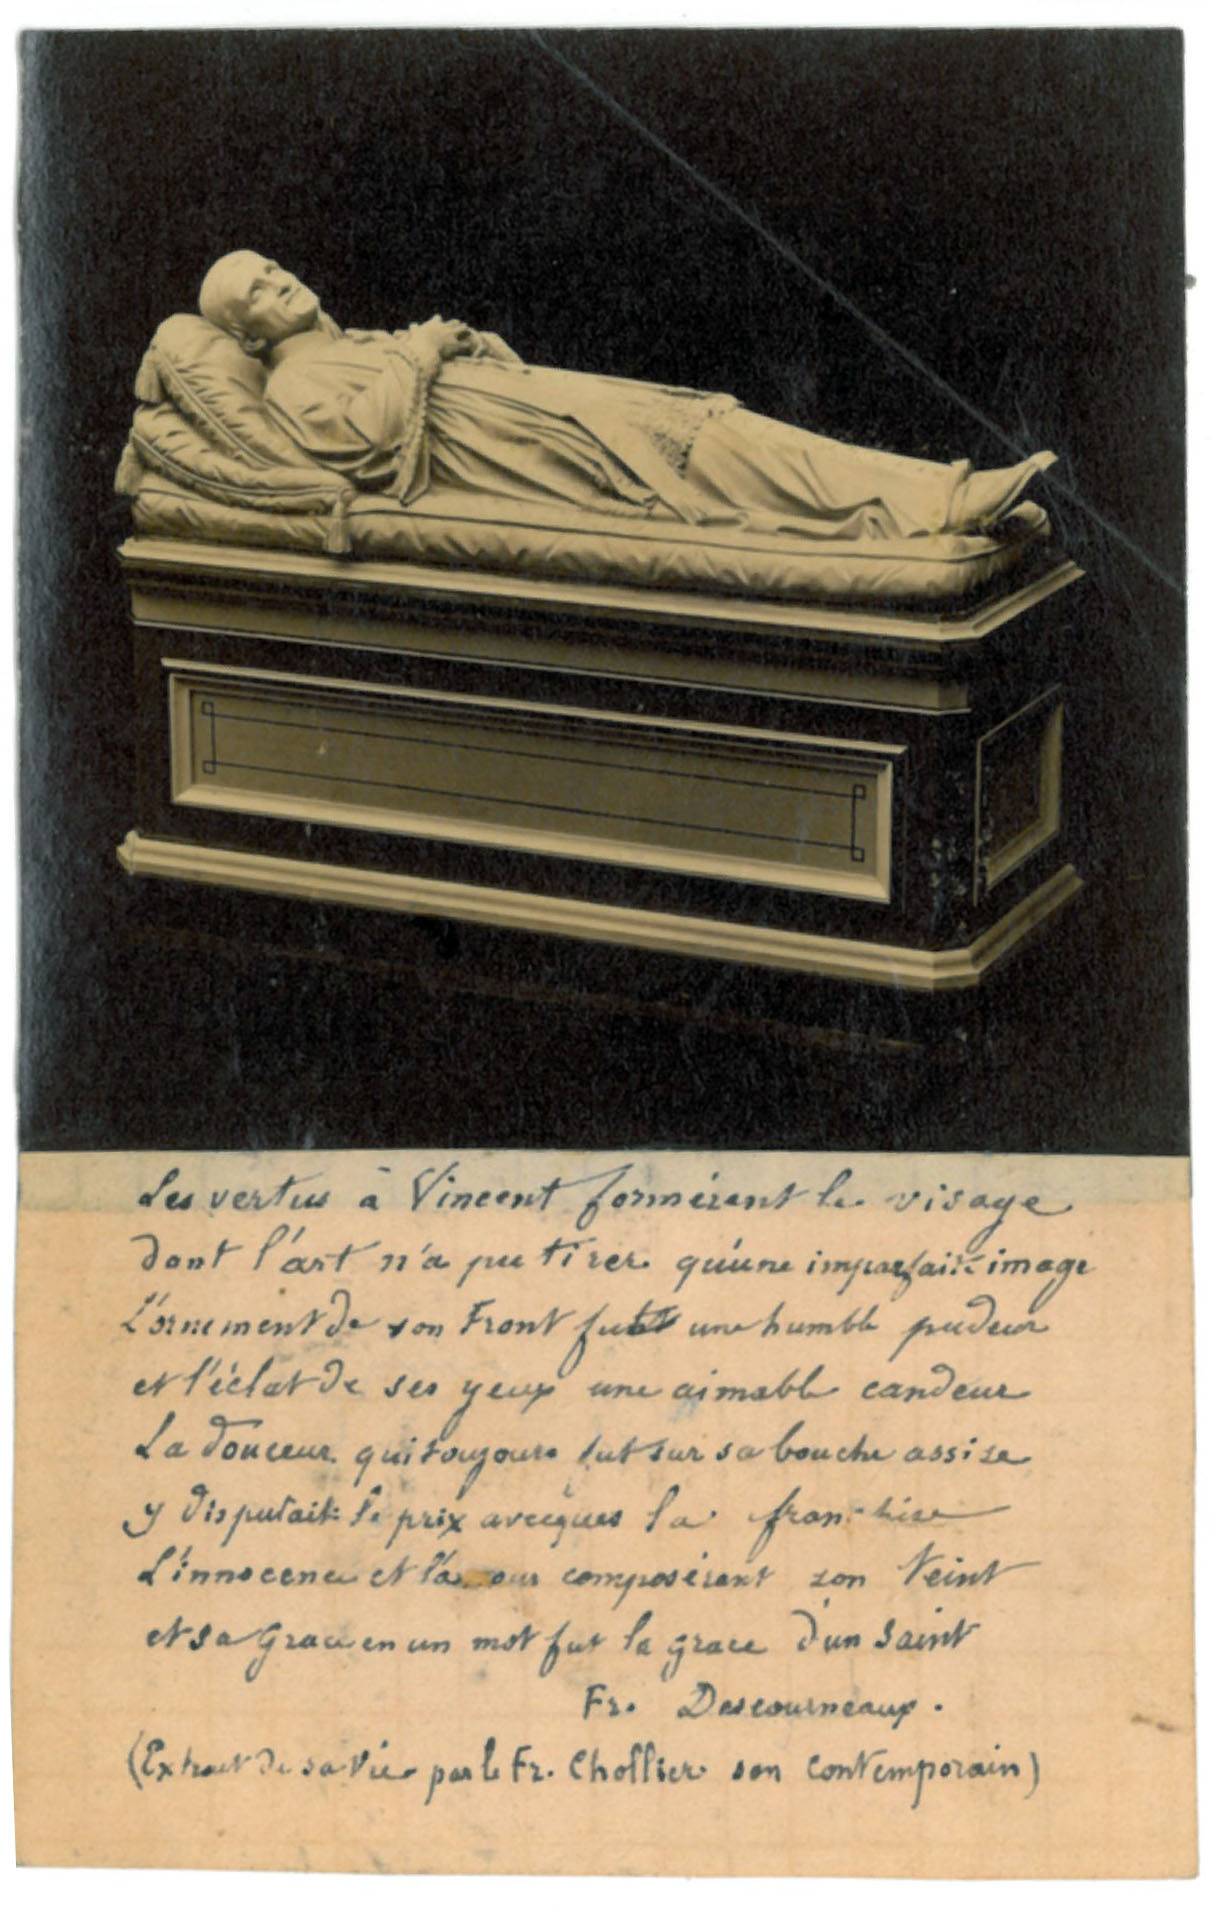 Les vertus à Vincent formérent le visage
dont l'art n'a pu tirer qu'une imparfaite image
L'ornement de son Front fut une humble pudeur
et l'éclat de ses yeux une aimable candeur
La douceur qui toujours fut sur sa bouche assise
y disputait le prix avecques la franchise
L'innocence et l'amour composérent son teint
et sa grace en un mot fut la grace d'un Saint
Fr. Descourneaux.
(Extrait de sa Vie par le Fr. Chollier son contemporain)